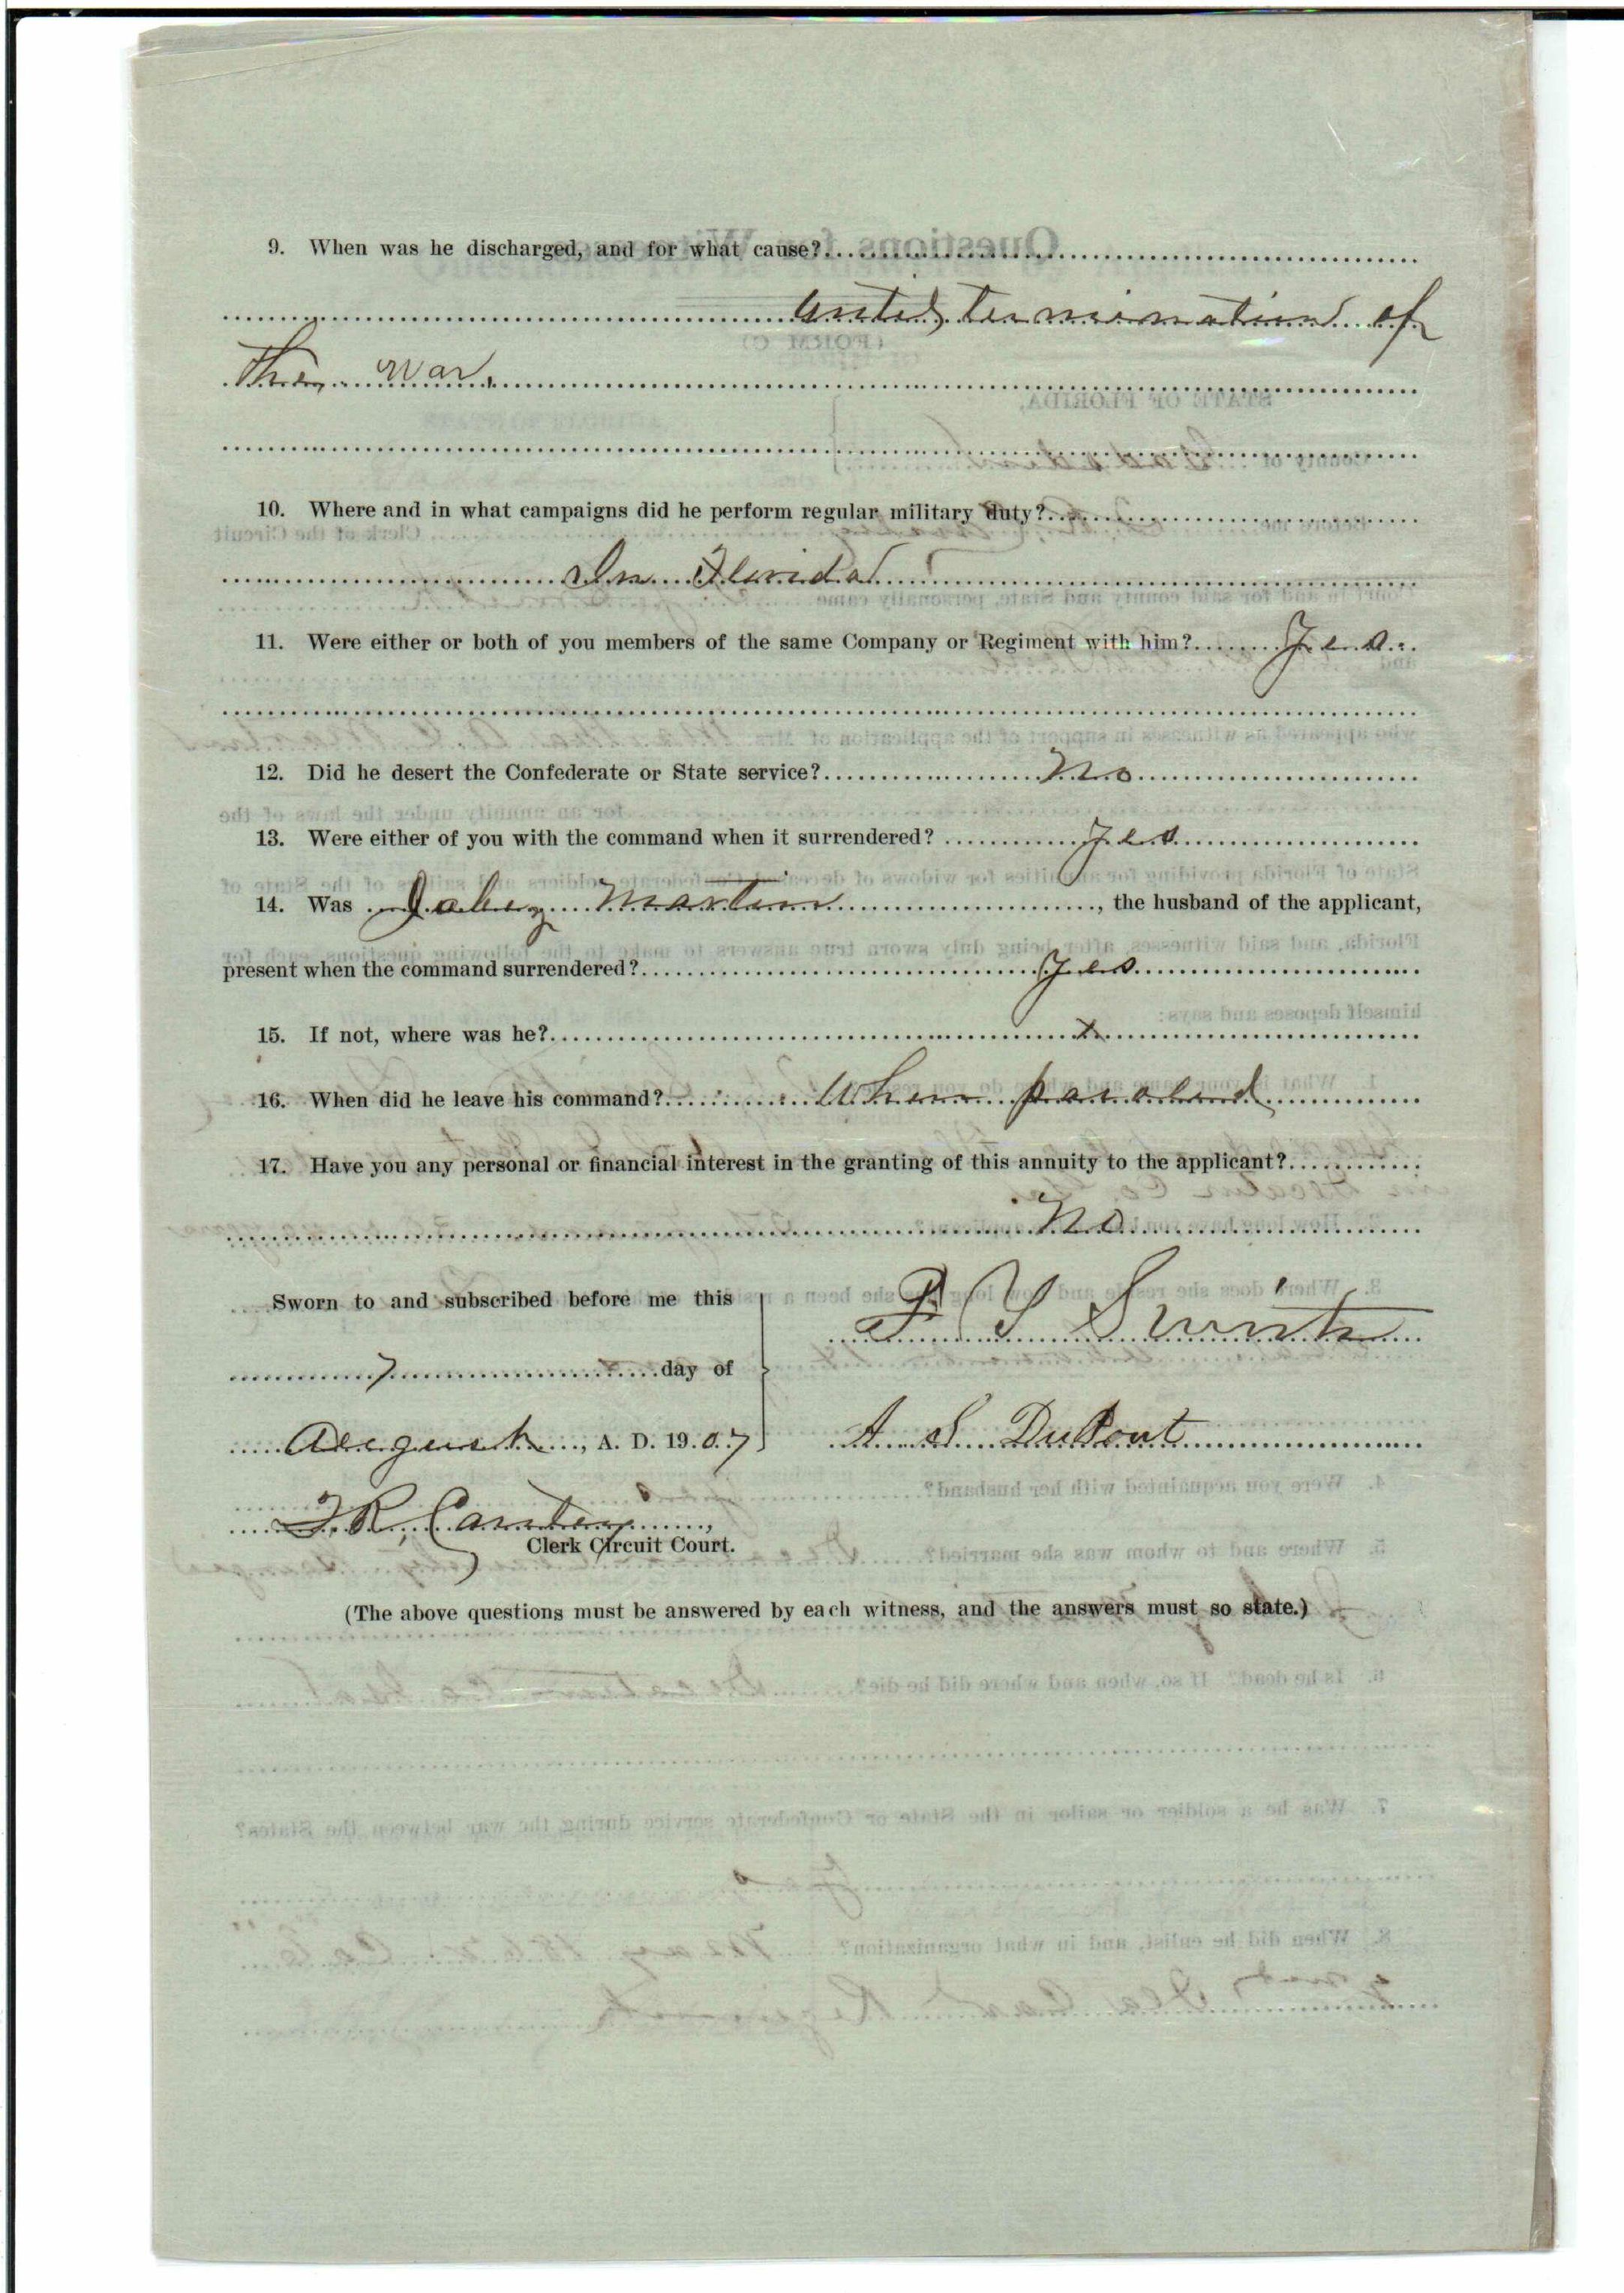 9. When was he discharged, and for what cause?
until termination of
the war.
10. Where and in what campaigns did he perform regular military duty?
In Florida
11. Were either or both of you members of the same Company or Regiment with him? Yes.
12. Did he desert the Confederate or State service? No
13. Were either of you with the command when it surrendered? Yes
14. Was Jabez Martin, the husband of the applicant,
present when the command surrendered? Yes
15. If not, where was he? x
16. When did he leave his command? When paroled
17. Have you any personal or financial interest in the granting of this annuity to the applicant?
No
Sworn to and subscribed before me this
7 day of
August, A. D. 1907
P S Swint
A S DuPont
Clerk Circuit Court.
(The above questions must be answered by each witness, and the answers must so state.)